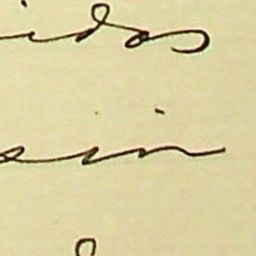 idos
sin